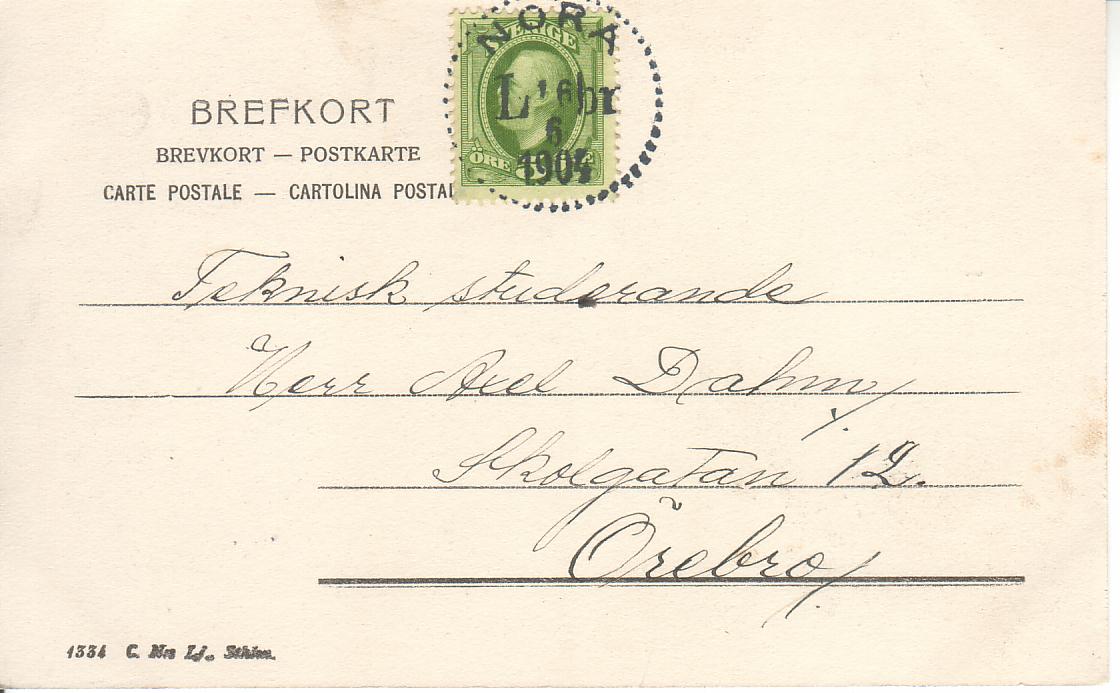 NORA
SVERIGE
BREFKORT
BREVKORT — POSTKARTE
6
ÖRE
1904
CARTE POSTALE — CARTOLINA POSTAL
Teknisk studerande
Herr Axel Dahm
Skolgatan 12.
Örebro
1334 C. Ns Lj., Sthlm.